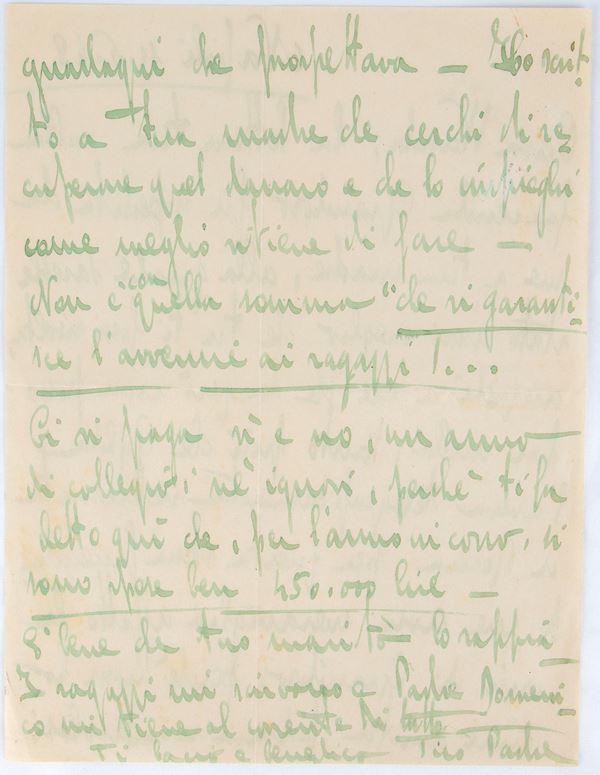 guadagni che prospettava — Ho scrit-
to a tua madre che cerchi di re-
cuperare quel danaro e che lo impieghi
come meglio ritiene di fare —
Non è con quella somma "che si garanti-
sce l'avvenire ai ragazzi!...
Ci si paga sì e no, un anno
di collegio, nè ignori, perchè ti fu
detto qui che, per l'anno in corso, si
sono spese ben 450.000 lire —
E' bene che tuo marito lo sappia
I ragazzi mi scrivono e Padre Domeni-
co mi tiene al corrente di tutto
Ti bacio e benedico Tuo Padre